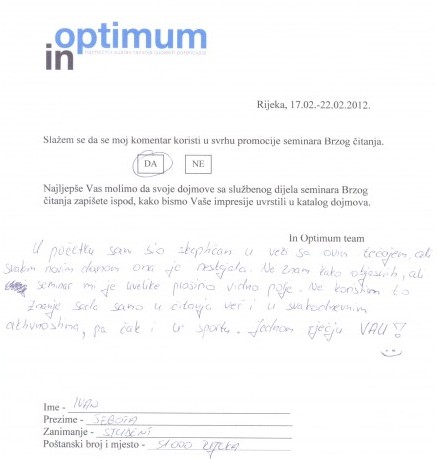 in optimum
Rijeka, 17.02.-22.02.2012.
Slažem se da se moj komentar koristi u svrhu promocije seminara Brzog čitanja.
DA NE
Najljepše Vas molimo da svoje dojmove sa službenog dijela seminara Brzog
čitanja zapišete ispod, kako bismo Vaše impresije uvrstili u katalog dojmova.
In Optimum team
U početku sam bio skeptičan u vezi sa ovim tečajem, ali
svakim novim danom ona je nestajala. Ne znam kako objasniti, ali
seminar mi je uvelike proširio vidno polje. Ne koristim to
znanje sada samo u čitanju već i u svakodnevnim
aktivnostima, pa čak i u sportu. Jednom riječju VAU!!
Ime - IVAN
Prezime - SEBOTA
Zanimanje - STUDENT
Poštanski broj i mjesto - 51000 RIJEKA